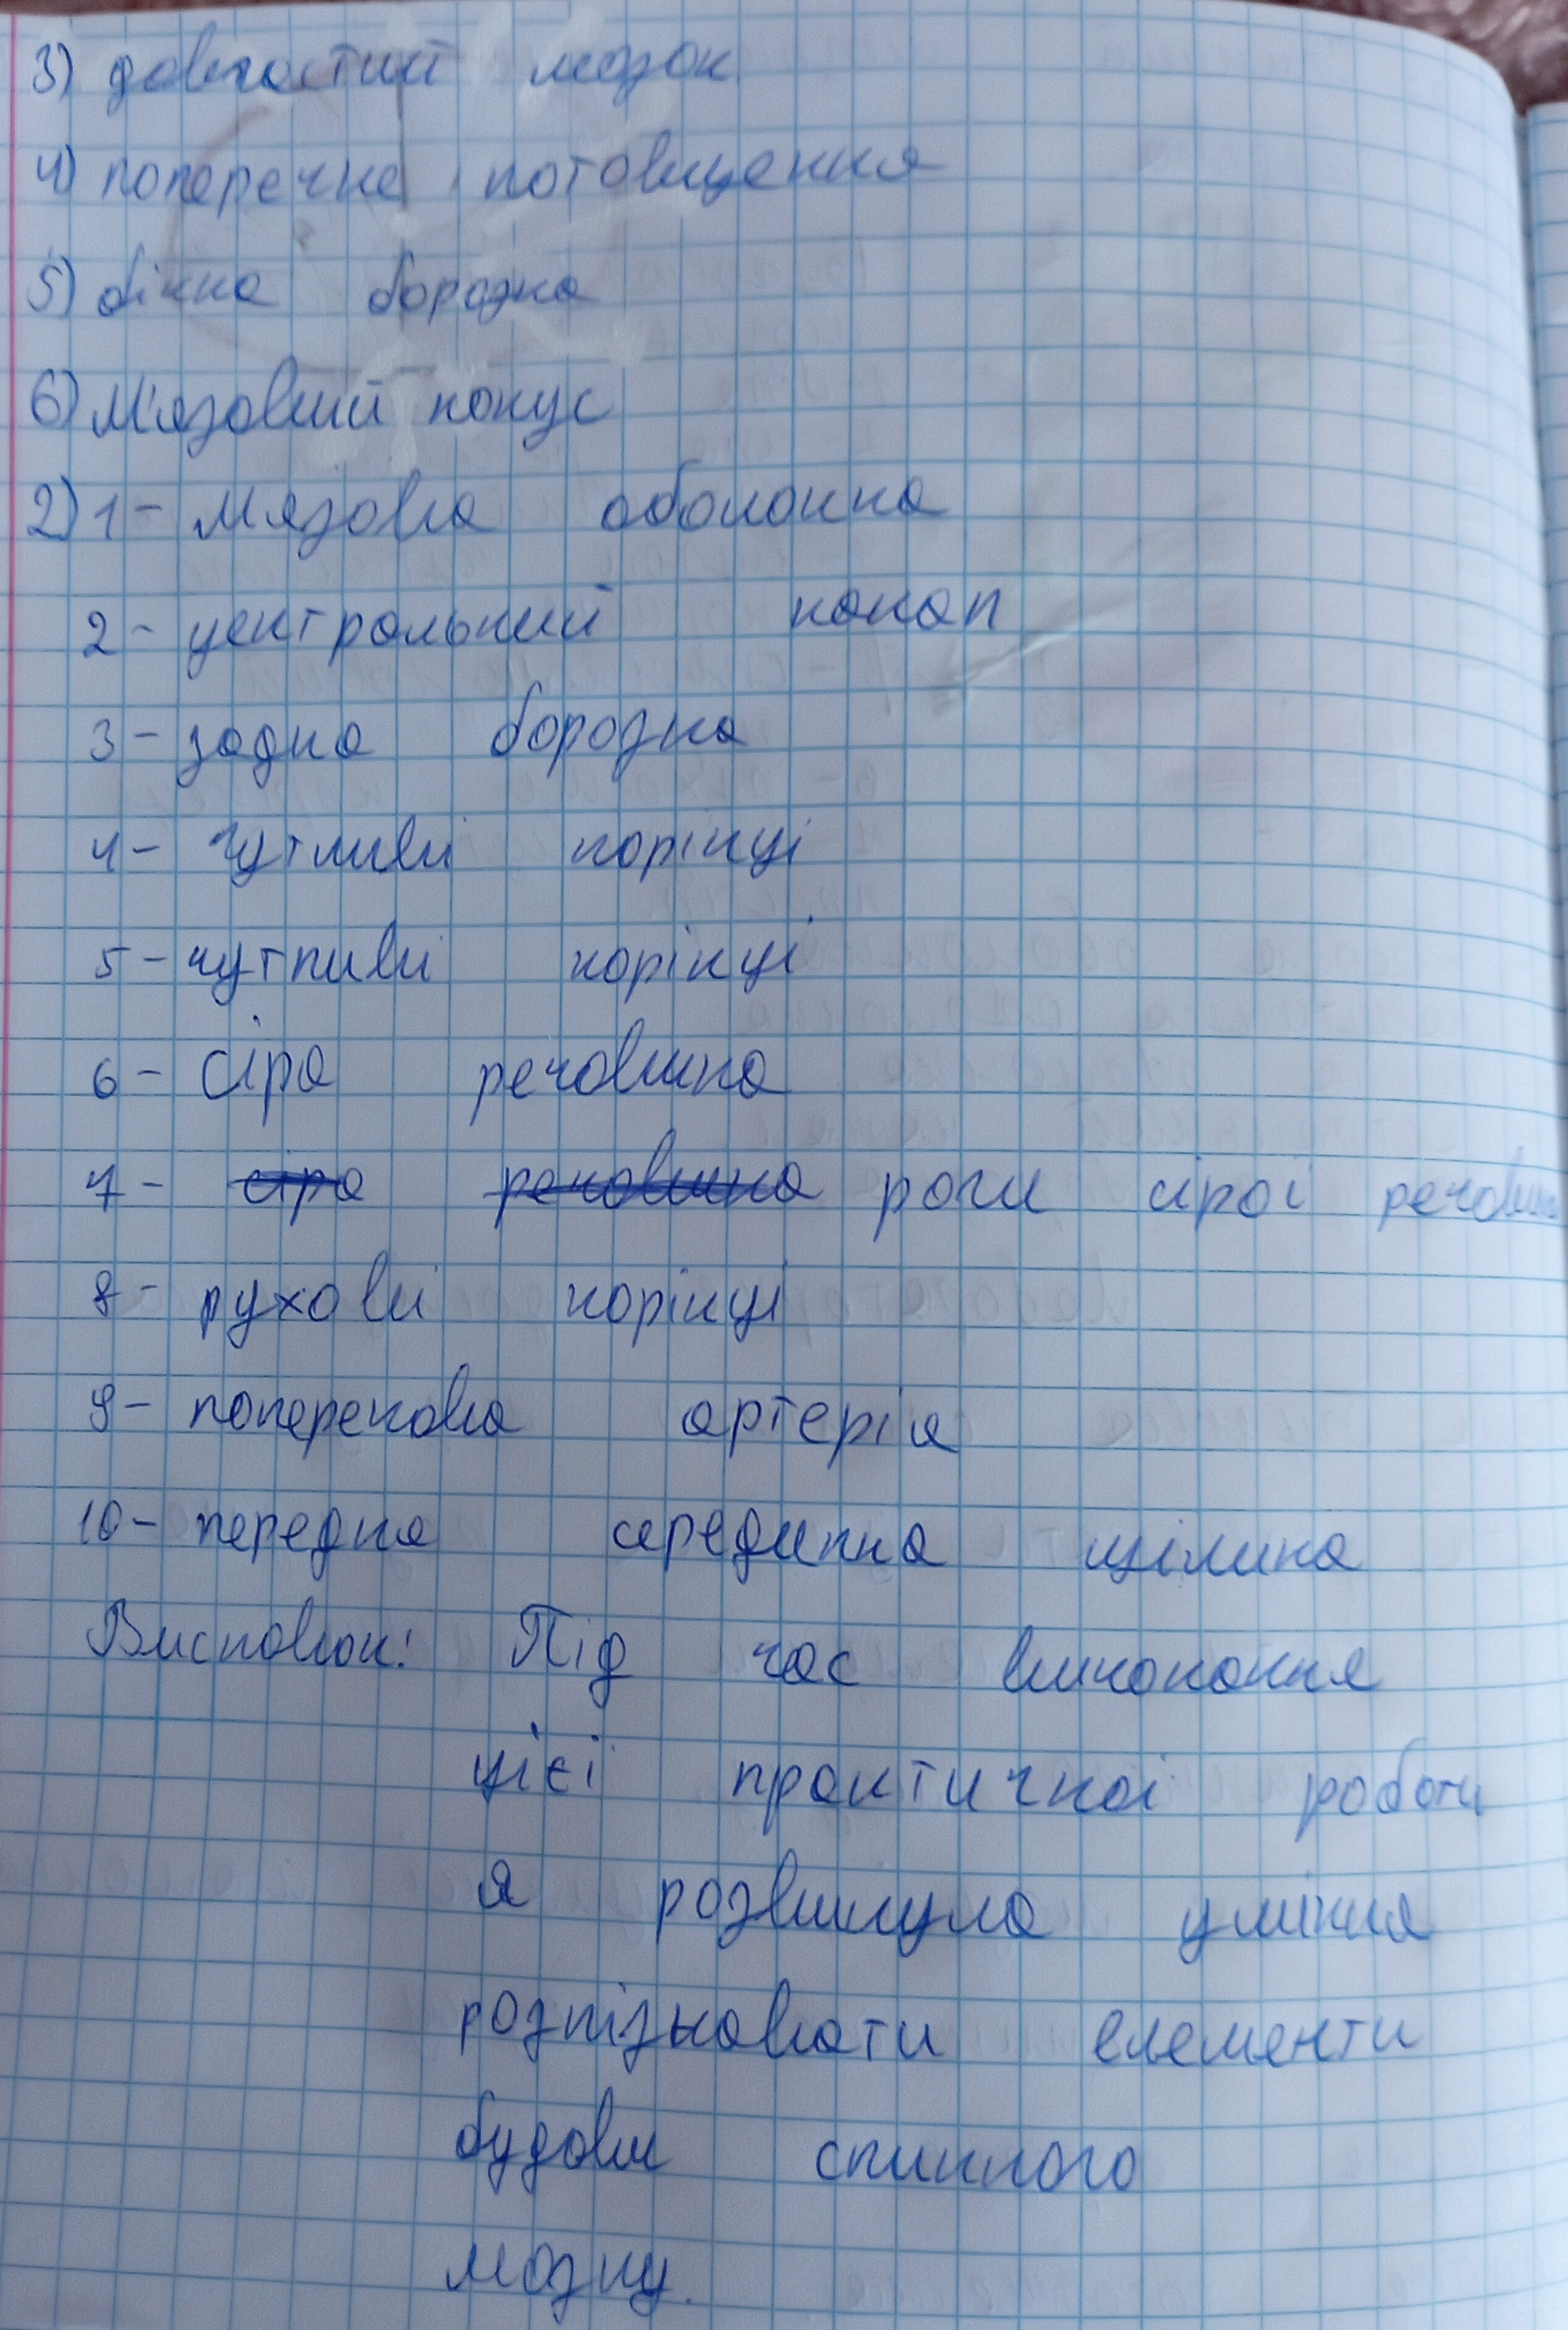 3) довгастий мозок
4) поперечне потовщення
5) бічна борозна
6) М'язовий конус
2) 1- М'язова оболонка
2- центральний канал
3- задна борозна
4- чутливі корінці
5- чутливі корінці
6- сіра речовина
7- сіра речовина роги сірої речовини
8- рухові корінці
9- поперекова артерія
10- передня серединна щілина
Висновок: Під час виконання
цієї практичної роботи
я розвинула уміння
розпізнавати елементи
будови спинного
мозку.